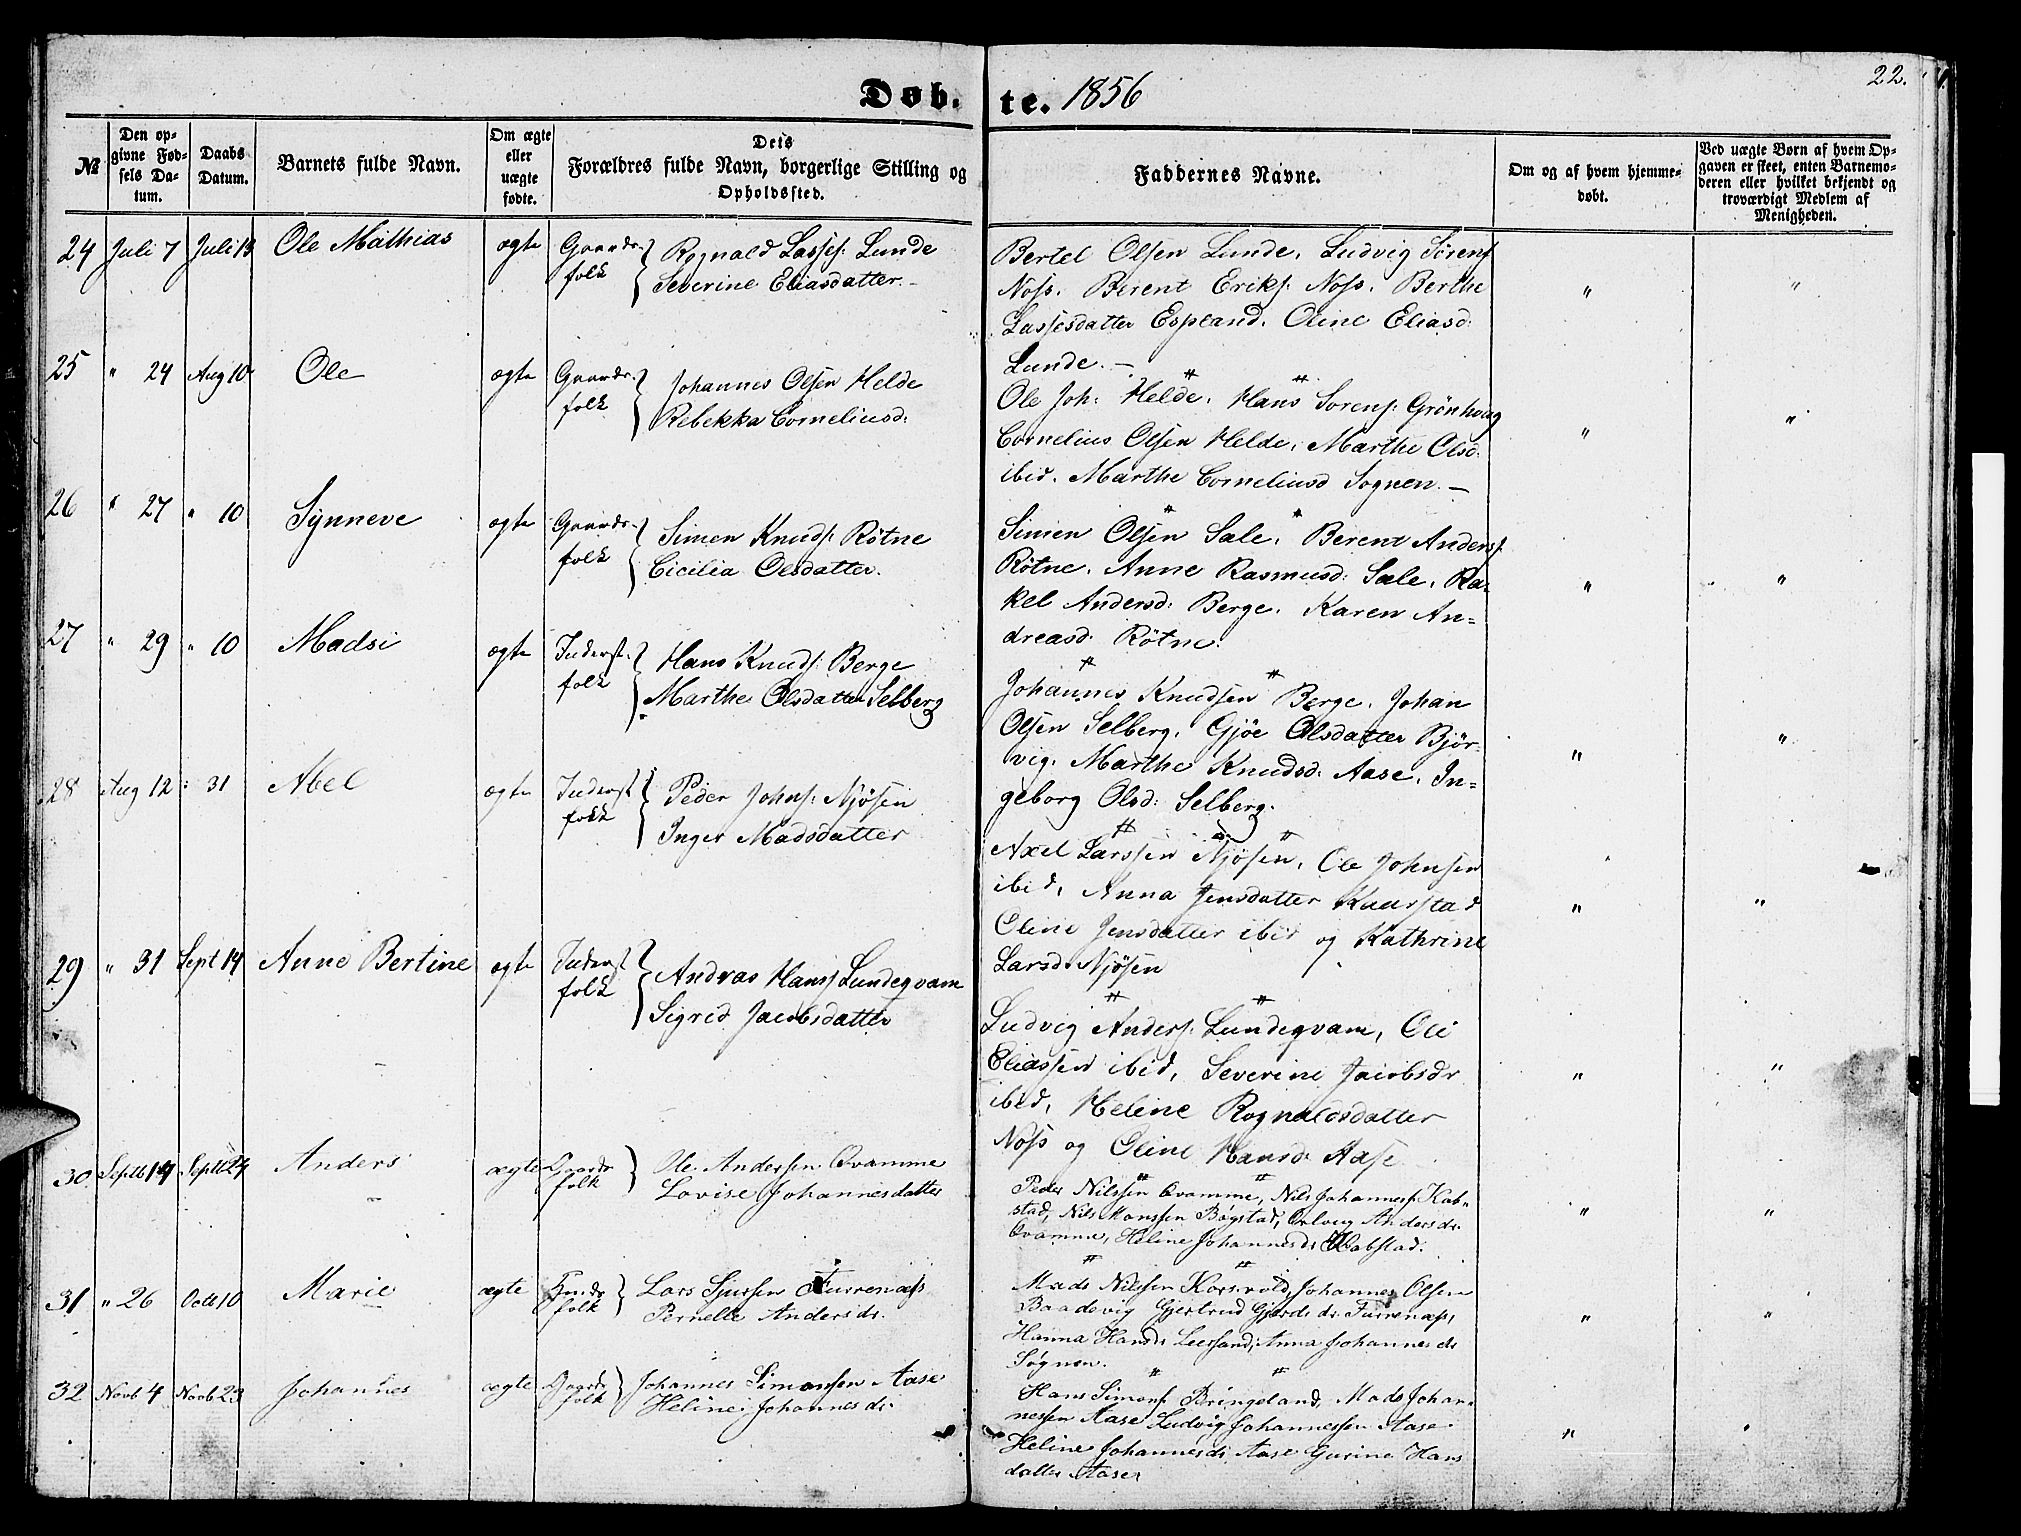 Døb-te. 1856
22.
№
Den opgivne Fødsels Datum.
Daabs Datum.
Barnets fulde Navn.
Om ægte eller uægte fødte.
Dets Forældres fulde Navn, borgerlige Stilling og Opholdssted.
Faddernes Navne.
Om og af hvem hjemmedøbt.
Ved uægte Børn af hvem Opgaven er skeet, enten Barnemoderen eller hvilket bekjendt og troværdigt Medlem af Menigheden.
24 Juli 7 Juli 13 Ole Mathias ægte Gaardsfolk
Rognald Lasses: Lunde
Severine Eliasdatter.-
Bertel Olsen Lunde, Ludvig Sørens
Noss. Berent Eriks: Noss. Berthe
Lassesdatter Espeland, Oline Eliasd:
Lunde.-
" "
25 " 24 Aug 10 Ole ægte Gaardsfolk
Johannes Olsen Helde
Rebekka Corneliusd:
Ole Joh: Helde, Hans Sørens: Grønhoug
Cornelius Olsen Helde, Marthe Olsd.
ibid. Marthe Corneliusd Sognen.-
" "
26 " 27 " 10 Synneve ægte Gaardsfolk
Simen Knuds: Røtne
Cicilia Olsdatter.
Simen Olsen Sæle, Berent Anders:
Røtne, Anne Rasmusd: Sæle, Ra-
kel Andersd: Berge, Karen An=
dreasd. Røtne.
" "
27 " 29 " 10 Madsi ægte Inderstfolk
Hans Knuds: Berge
Marthe Olsdatter Selberg
Johannes Knudsen Berge, Johan
Olsen Selberg, Gjøe Olsdatter Bjør-
vig. Marthe Knudsd. Aase, In=
geborg Olsd: Selberg.
" "
28 Aug 12 : 31 Abel ægte Inderstfolk
Peder Johns: Njøsen
Inger Madsdatter
Axel Larssen Njøsen, Ole Johnsen
ibid, Anna Jensdatter Kaarstad
Oline Jensdatter ibid og Kathrine
Larsd. Njøsen
" "
29 " 31 Sept 14 Anne Bertine ægte Inderstfolk
Andreas Hanss Lundeqvam
Sigrid Jacobsdatter
Ludvig Anders: Lundeqvam, Ole
Eliassen ibid, Severine Jacobsdr
ibid, Heline Rognaldsdatter
Noss og Oline Hansd: Aase
" "
30 Septb 14 Septb 27 Anders ægte Gaardfolk
Ole Anderssen Qvamme
Lovise Johannesdatter
Peder Nilssen Qvamme, Nils Johannes: Kab-
stad, Nils Monssen Bøgstad, Andersdr.
Qvamme, Heline Johannesdr Kabstad.
" "
31 " 26 Octb 10 Marie ægte folk
Lars Sjurssen Furrenæs
Pernelle Andersdr.
Mads Nilssen Korsvold, Johannes Olsen
Baadsvig Gjertrud Gjerdsdr. Furrenæs,
Hanna Hansdr Leersand, Anna Johannesdr
Søgnen.
" "
32 Novb 4 Novb 23 Johannes ægte Gaardfolk
Johannes Simonsen Aase
Heline Johannesdr.
Hans Simons: Bringeland, Mads Johan-
nessen Aase Ludvig Johannessen Aase
Heline Johannesdr. Aase Gurine Hans
datter Aase,
" "